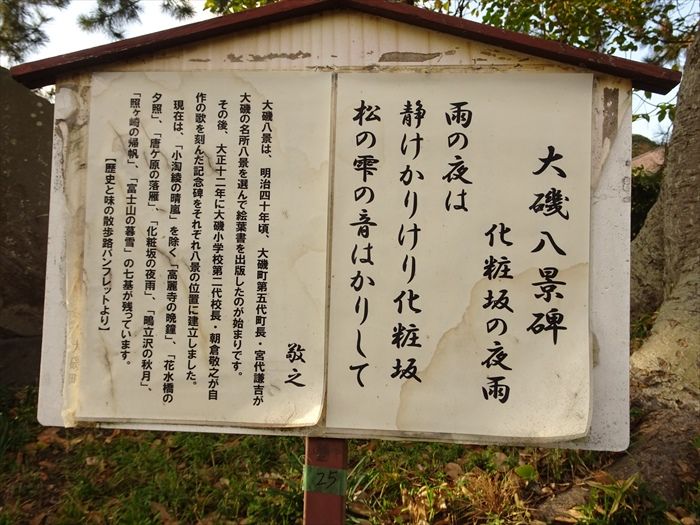 大磯八景碑
化粧坂の夜雨
雨の夜は
静けかりけり化粧坂
松の雫の音はかりして
敬之
大磯八景は、明治四十年頃、大磯町第五代町長・宮代謙吉が
大磯の名所八景を選んで絵葉書を出版したのが始まりです。
その後、大正十二年に大磯小学校第二代校長・朝倉敬之が自
作の歌を刻んだ記念碑をそれぞれ八景の位置に建立しました。
現在は、「小淘綾の晴嵐」を除く「高麗寺の晩鐘」、「花水橋の
夕照」、「唐ケ原の落雁」、「化粧坂の夜雨」、「鴫立沢の秋月」、
「照ヶ崎の帰帆」、「富士山の暮雪」の七基が残っています。
【歴史と味の散歩路パンフレットより】
大磯町
25